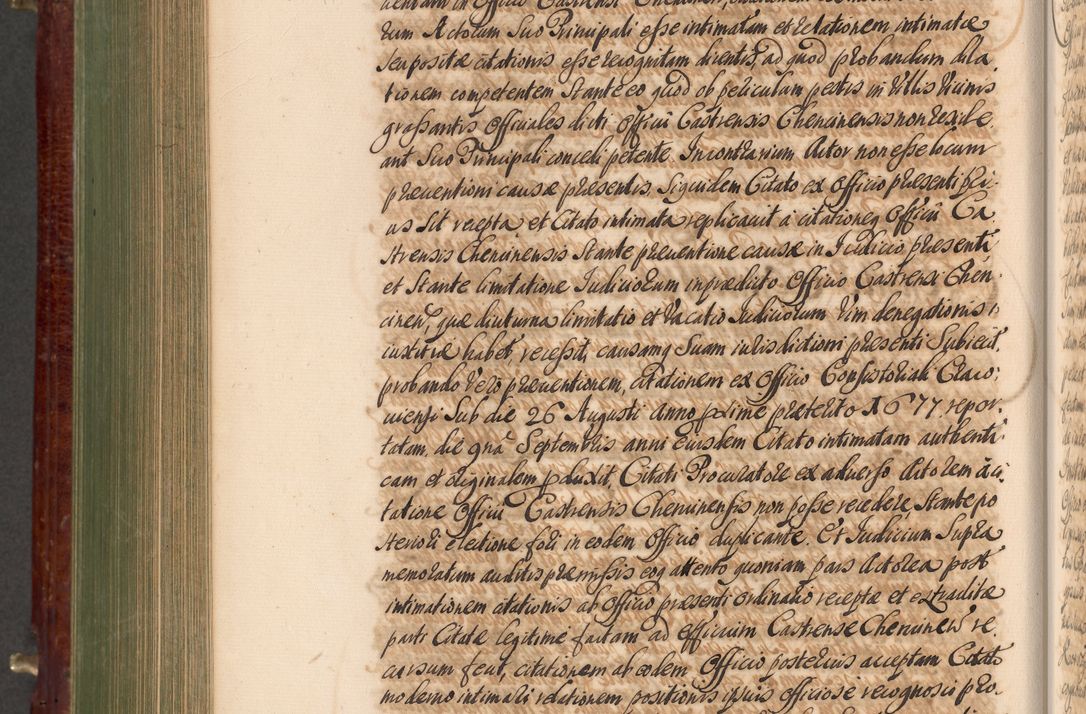 rum Actorum Suo Principali esse intimatam et relationem intimatæ
seu positæ citationis esse recognitam dicentis, ad quod probandum dila
tionem competentem Stante eo quod ob periculum pestis in Villis Vicinis
grassantis Officiales dicti Officii Castrensis Chencinensis non reside
ant Suo Principali concedi petente. In contrarium Actor non esse locum
præventioni causæ præsentis Siquidem Citatio ex Officio præsenti pri
us Sit recepta et Citato intimata replicavit a citatione Officii Ca
strensis Chencinensis Stante præventione causæ in Iudicio præsenti
et Stante limitatione Iudiciorum in prædicto Officio Castrensi Chen
cinen, quæ diuturna limitatio et Vacatio Iudiciorum Vim denegationis
iustitiæ habet, recessit, causamq Suam iurisdictioni præsenti Subiecit,
probando Vero præventionem, citationem ex Officio Consistoriali Craco
viensi Sub die 26 Augusti Anno proxime præterito 1677 repor
tatam, die Septembris anni eiusdem Citato intimatam authenti
cam et originalem produxit, Citati Procuratore ex adverso Actorem a ci
tatione Officii Castrensis Chencinensis non posse recedere Stante po
steriori electione fori in eodem Officio duplicante. Et Iudicium Supra
memoratum auditis præmissis eoq attento quoniam pars Actorea post
intimationem citationis ab Officio præsenti ordinario receptæ et extraditæ
parti Citatæ legitime factam ad officium Castrense Chencinen re
cursum fecit, citationem ab eodem Officio posterius acceptam Citato
moderno intimari relationem positionis ipsius officiose recognosci pro